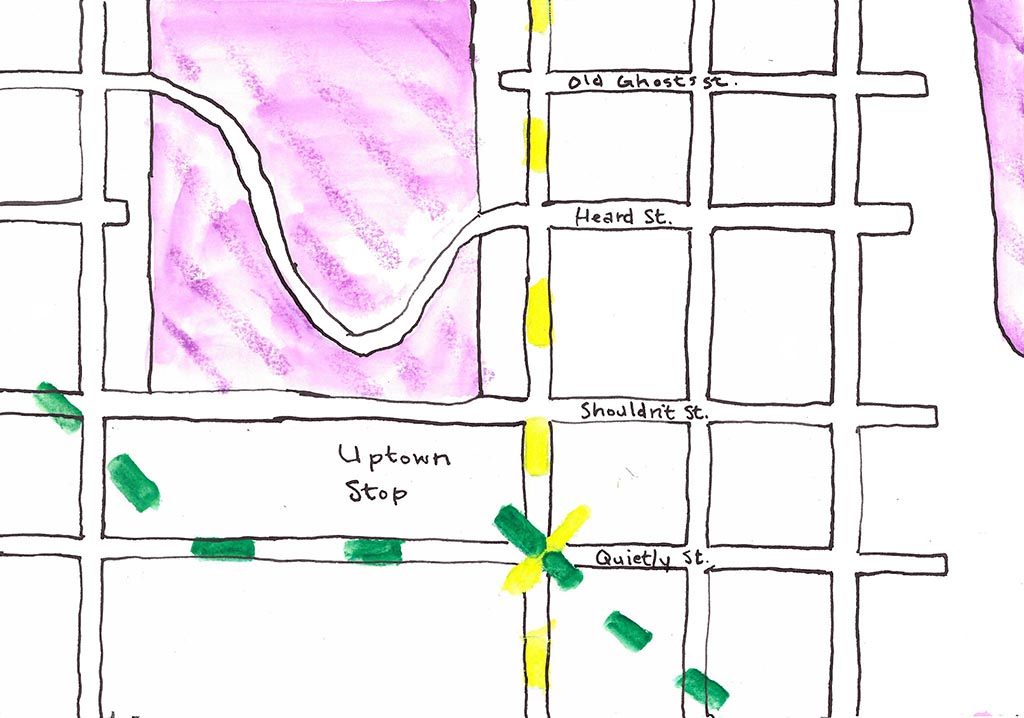 Old Ghosts st.
Heard St.
Shouldn't St.
Uptown
Stop
Quietly St.